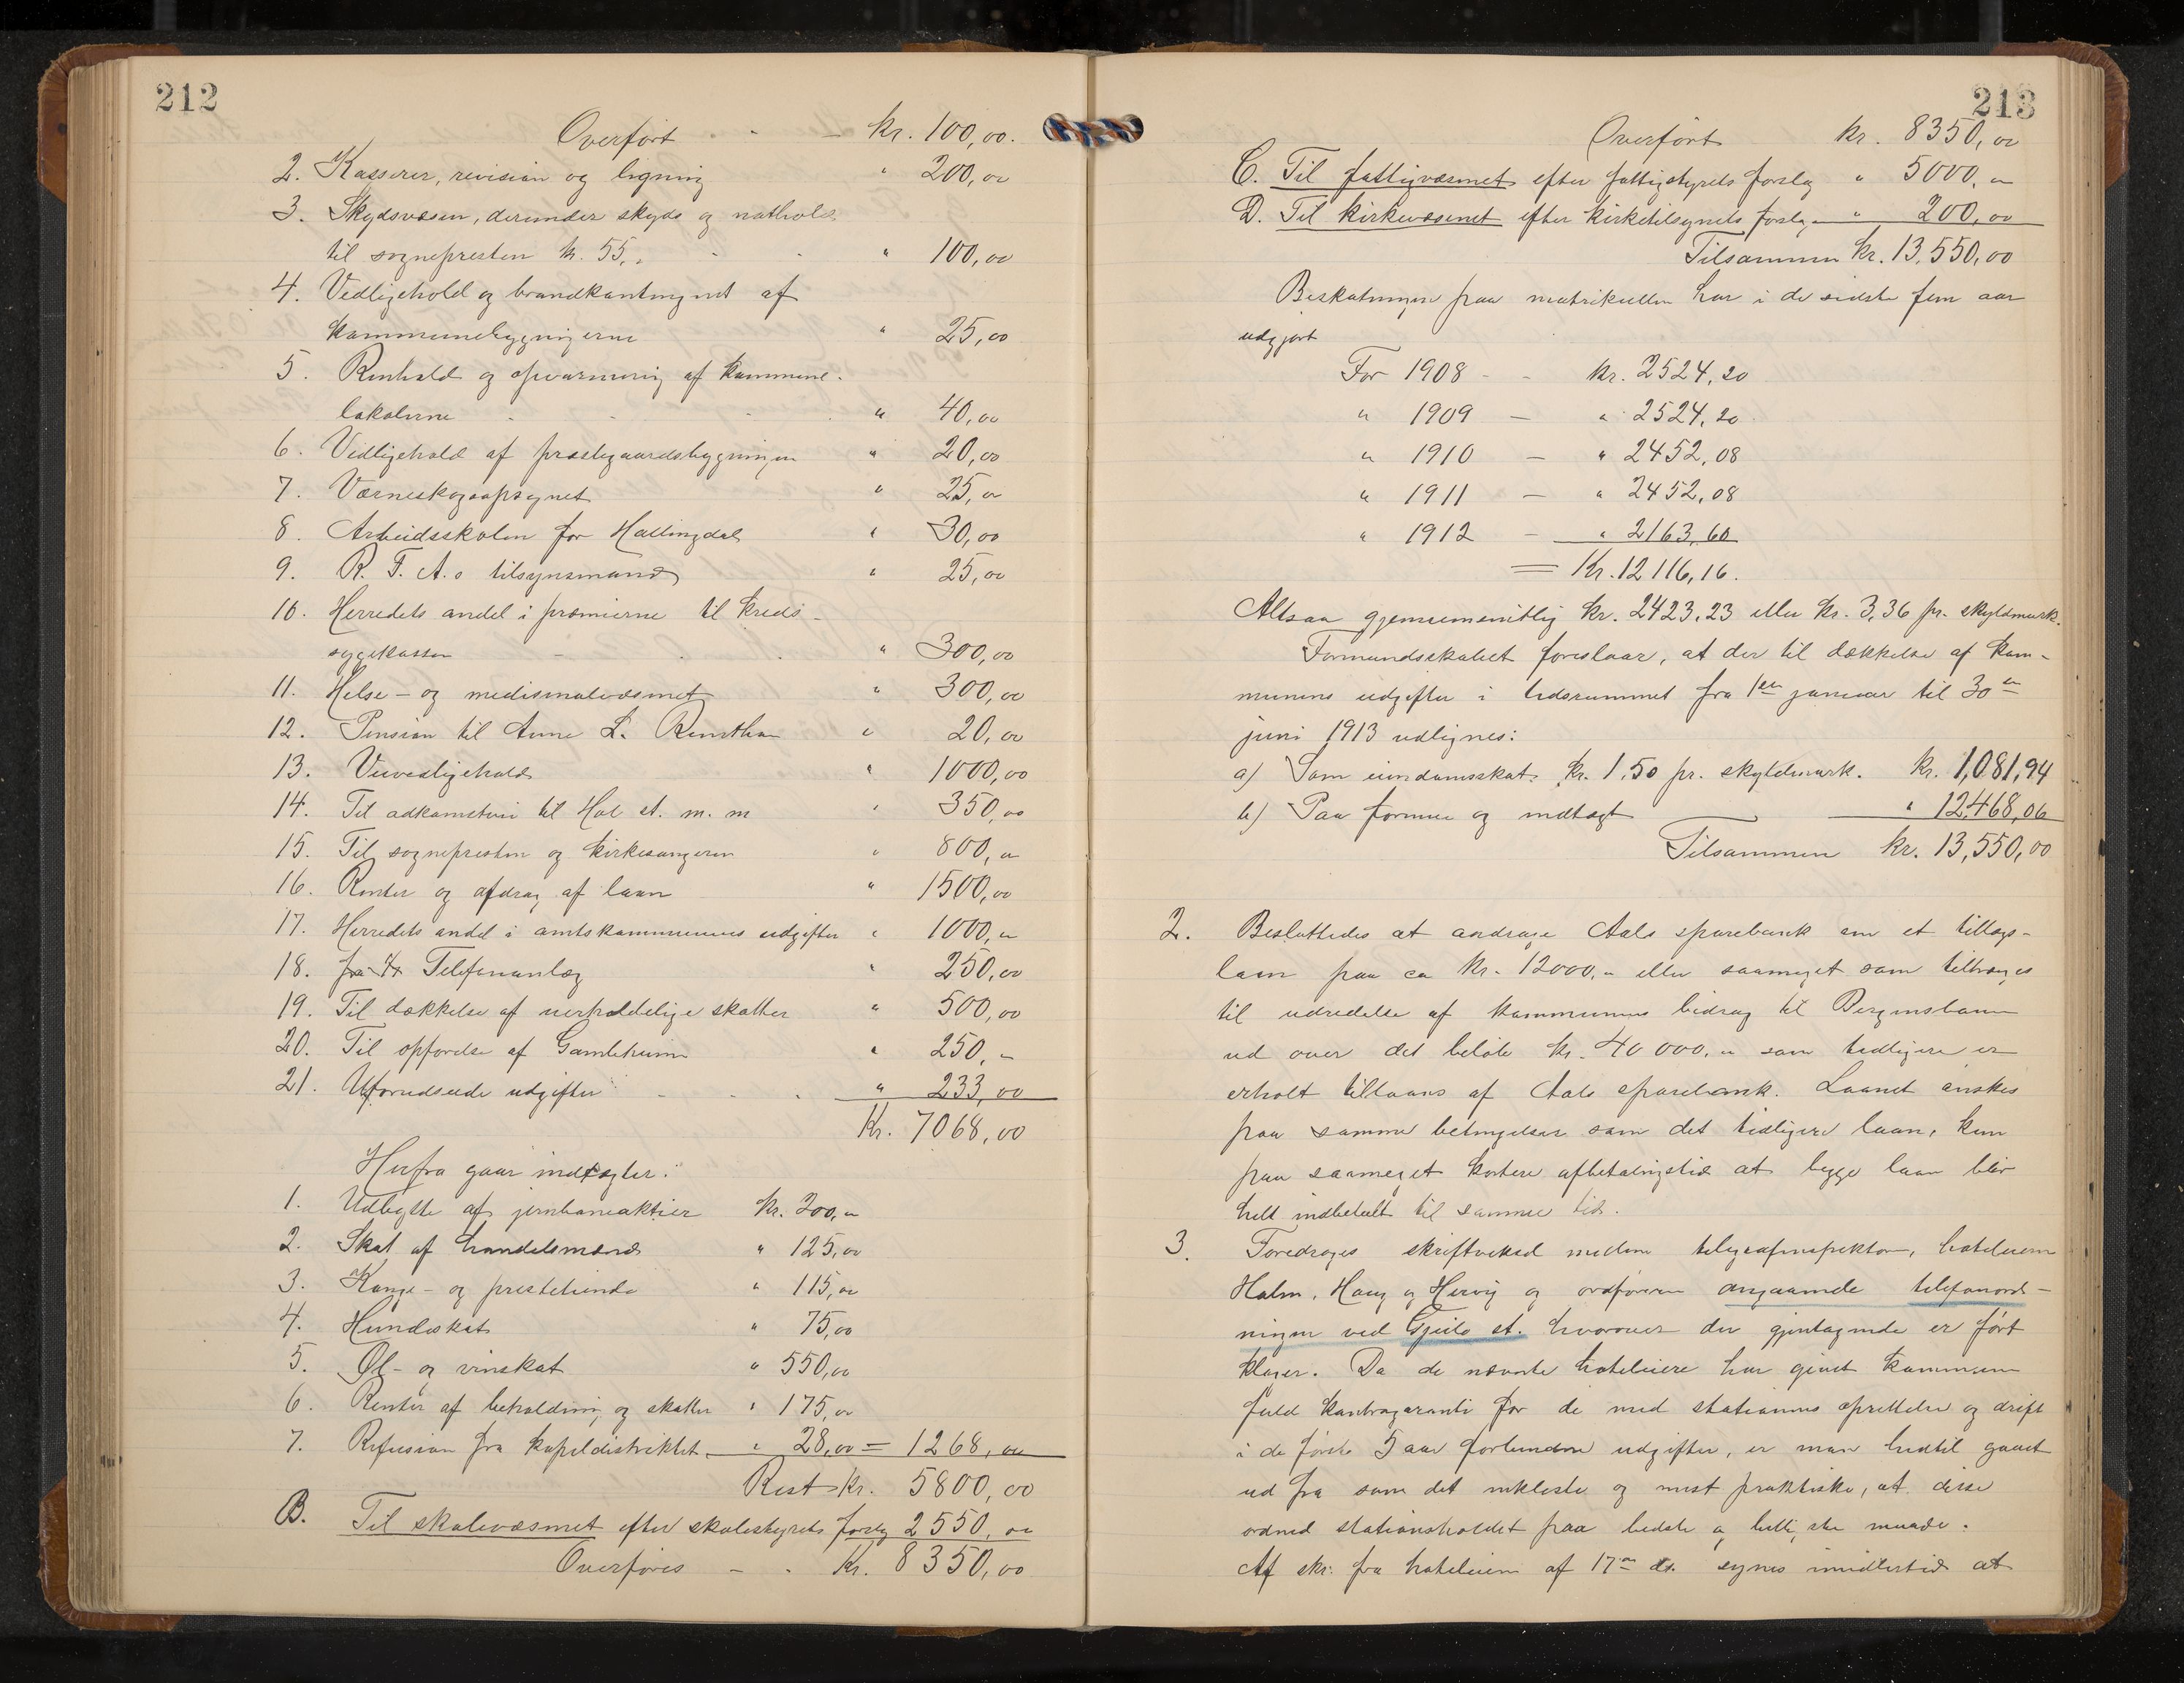 212
Overført - - kr. 100,00.
2. Kasserer, revision og ligning " 200,00
3. Skydsvæsen, derunder skyds og nathold
til sognepresten kr. 55,- " 100,00
4. Vedligehold og brandkontingent af
kommunebygningerne " 25,00
5. Renhold og opvarmning af kommune-
lokalerne " 40,00
6. Vedligehold af præstegaardsbygningen " 20,00
7. Værneskogopsynet " 25,00
8. Arbeidsskolen for Hallingdal " 30,00
9. R. F. A.s tilsynsmand " 25,00
10. Herredets andel i præmierne til kreds-
sygekassen " 300,00
11. Helse- og medisinalvæsnet " 300,00
12. Pension til Anne L. " 20,00
13. Veivedligehold " 1000,00
14. Til adkomstvei til Hol st. m. m " 350,00
15. Til sognepresten og kirkesangeren " 800,00
16. Renter og afdrag af laan " 1500,00
17. Herredets andel i amtskommunens udgifter " 1000,00
18. Telefonanlæg " 250,00
19. Til dækkelse af uerholdelige skatter " 500,00
20. Til opførelse af Gamleheim " 250,-
21. Uforudseede udgifter " 233,00
Kr. 7068,00
Herfra gaar indtægter:
1. Udbytte af jernbaneaktier Kr. 200,00
2. Skat af handelsmænd " 125,00
3. Konge- og prestetiende " 115,00
4. Hundeskat " 75,00
5. Øl- og vinskat " 550,00
6. Renter af beholdning og skatter " 175,00
7. Refusion fra kapeldistriktet " 28,00 = 1268,00
Rest kr. 5800,00
B. Til skolevæsnet efter skolestyrets forslag 2550,00
Overføres - - Kr. 8350,00
213
Overført kr. 8350,00
C. Til fattigvæsnet efter fattigstyrets forslag " 5000,00
D. Til kirkevæsenet efter kirketilsynets forslag " 200,00
Tilsammen kr. 13,550,00
Beskatningen paa matrikullen har i de sidste fem aar
udgjort
For 1908 - - kr. 2524,20
" 1909 - " 2524,20
" 1910 - " 2452,08
" 1911 - " 2452,08
" 1912 - " 2163,60
= Kr. 12116,16.
Altsaa gjennemsnitlig kr. 2423,23 eller kr. 3,36 pr. skyldmark.
Formandsskabet foreslaar, at der til dækkelse af kom-
munens udgifter i tidsrummet fra 1ste januar til 30te
juni 1913 udlignes:
a) Som eiendomsskat kr. 1,50 pr. skyldmark. kr. 1,081,94
b) Paa formue og indtægt " 12,468,06
Tilsammen kr. 13,550,00
2. Besluttedes at andrage Aals sparebank om et tillægs-
laan paa ca kr. 12000,- eller saameget som tiltrænges
til udredelse af kommunens bidrag til Bergensbanen
ud over det beløb kr. 40 000,- som tidligere er
erholt tillaans af Aals sparebank. Laanet ønskes
paa samme betingelser som det tidligere laan, kun
paa saameget kortere afbetalingstid at begge laan blir
helt indbetalt til samme tid.
3. Foredroges skriftveksel mellem telegrafinspektøren, hoteleierne
Holm, Haug og Hervig og ordføreren angaaende telefonord-
ningen ved Gjeilo st. hvorover der gjentagende er ført
klager. Da de nævnte hoteleiere har givet kommunen
fuld kontragaranti for de med stationens oprettelse og drift
i de første 5 aar forbundne udgifter, er man hidtil gaaet
ud fra som det enkleste og mest praktiske, at disse
ordned stationsholdet paa bedste og billigste maade.
Af skr. fra hoteleierne af 17de ds. synes imidlertid at